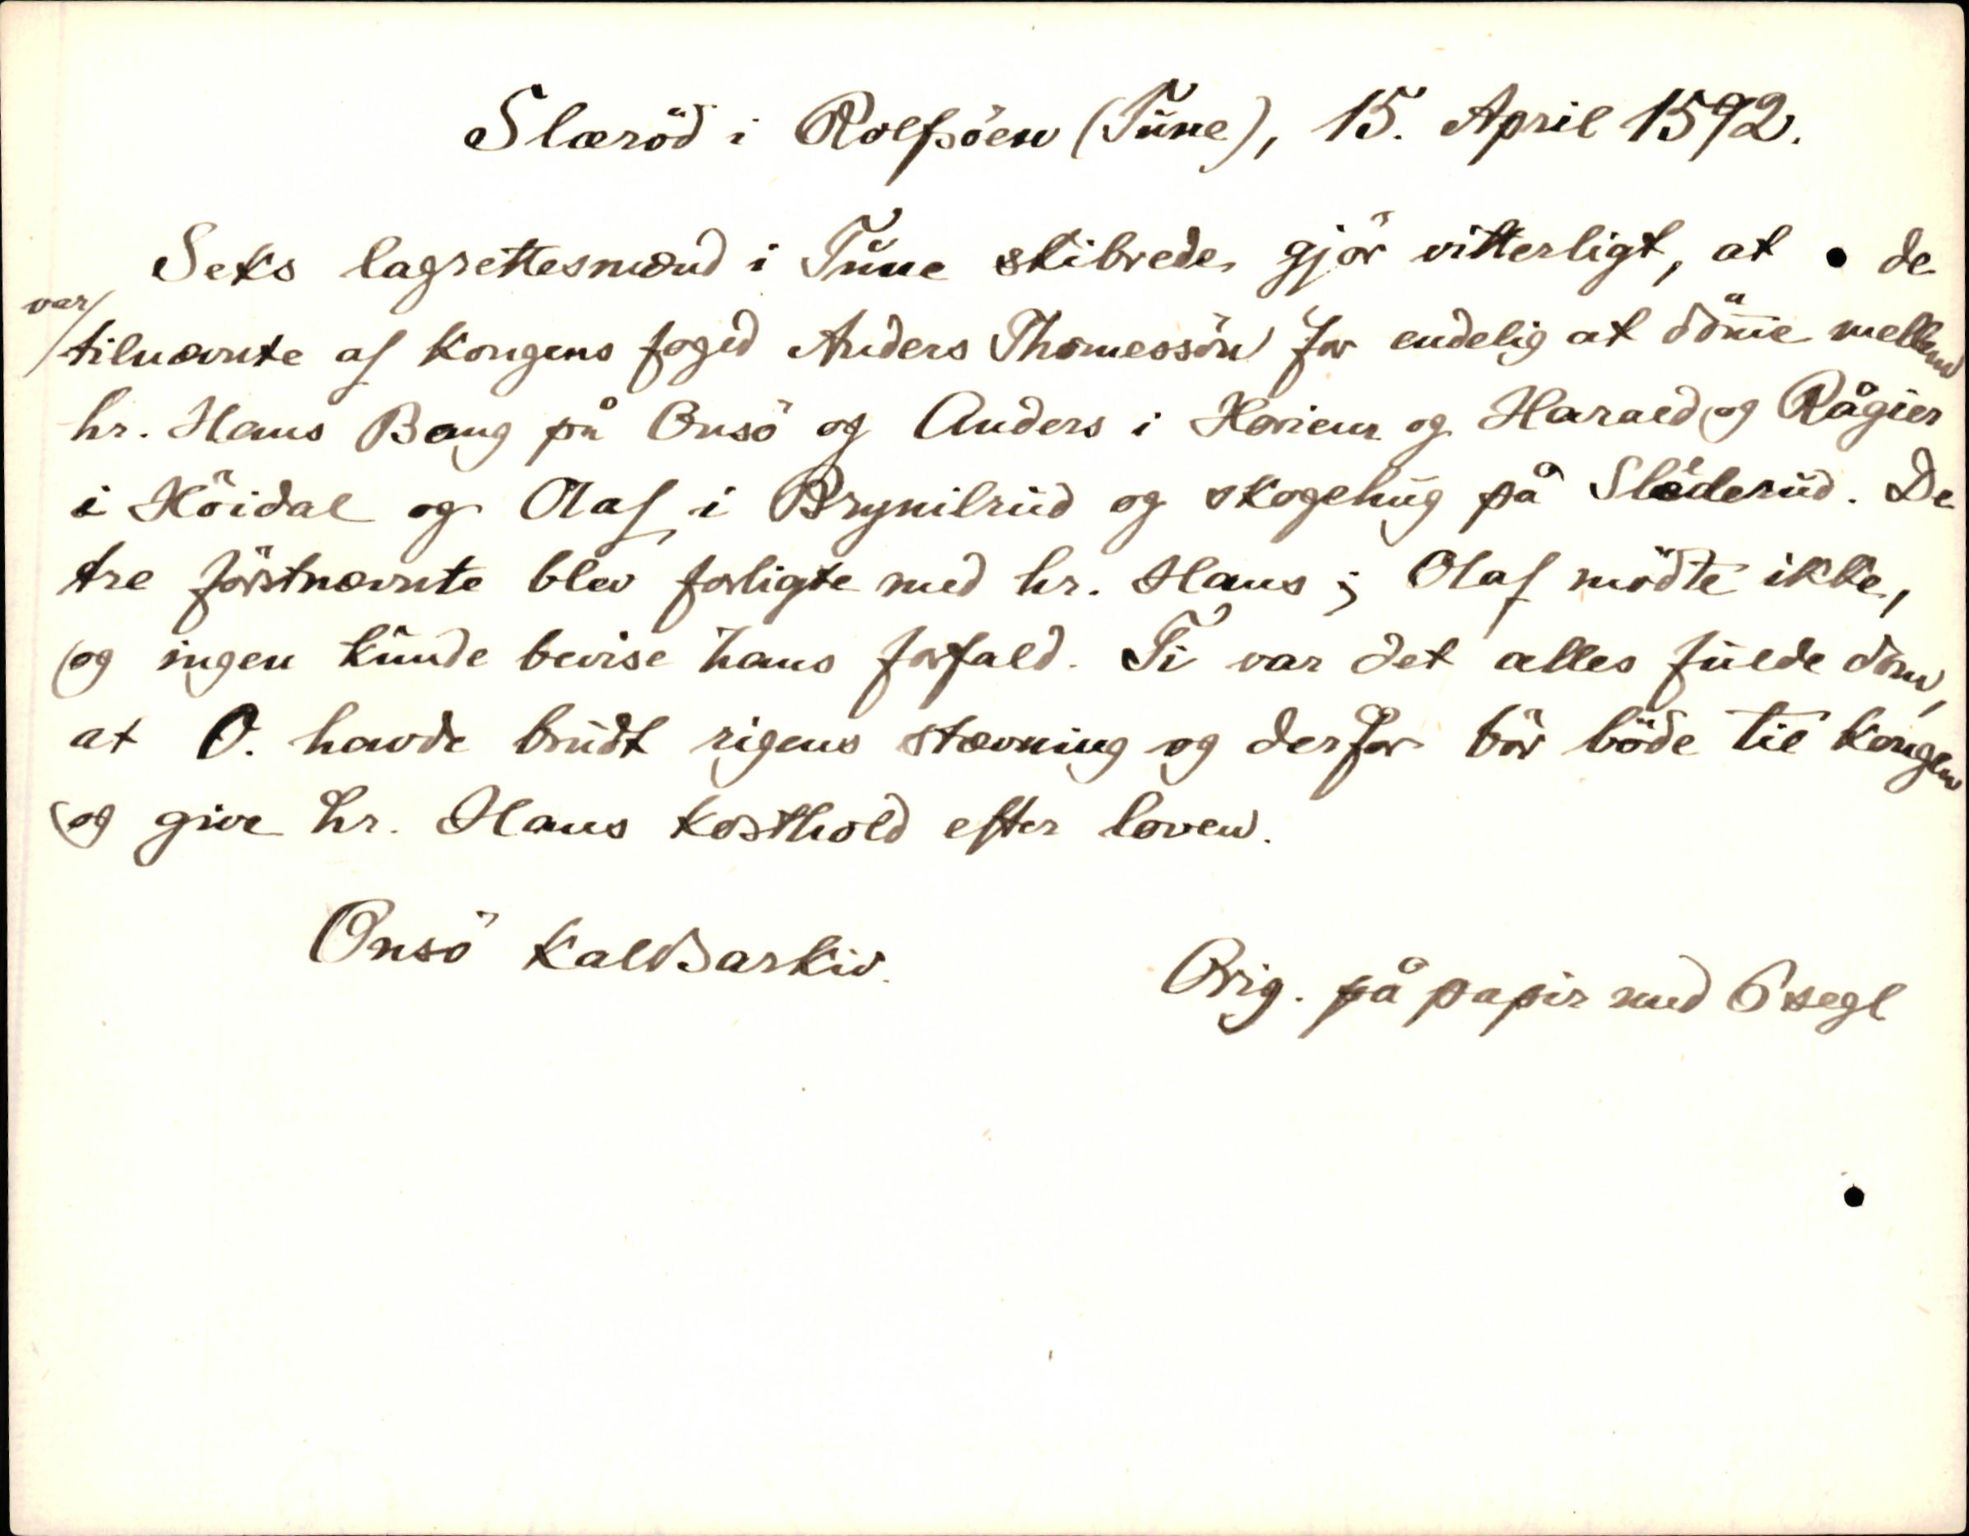 Slæröd i Rolfsöen (Tune), 15. April 1592.
Seks lagrettesmænd i Tune skibrede gjör vitterligt, at de
var/
tilnævnte af kongens foged Anders Thomessön for endelig at dömme mellem
hr. Hans Bang på Onsö og Anders i Havieim og Harald og Rågier
i Höidal og Olaf i Brynilrud og skogehug på Släderud. De
tre förstnævnte blev forligte med hr. Hans; Olaf mödte ikke,
og ingen kunde bevise hans forfald. Ti var det alles fulde dom,
at O. havde brudt rigens stævning og derfor bör böde til kongen
og give hr. Hans kosthold efter loven.
Onsö kaldsarkiv.
Orig. på papir med 6 segl